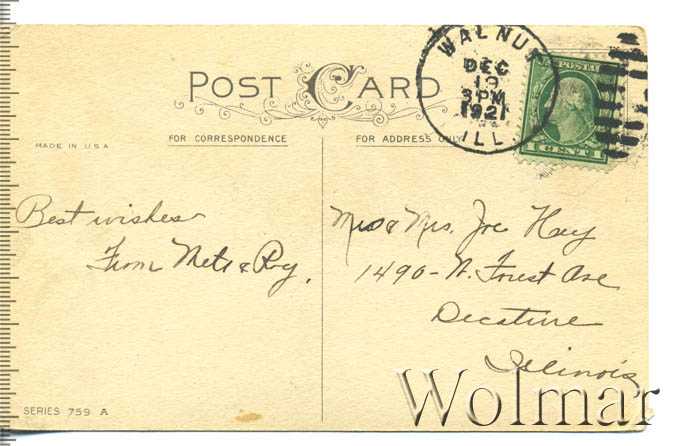 POST CARD
FOR CORRESPONDENCE
FOR ADDRESS ONLY
MADE IN U.S.A
WALNUT
DEC
19
3 PM
1921
ILL.
POSTA
1 CENT 1
Best wishes
From Nets & Roy.
Mr & Mrs. Joe Hay
1490 - N. Forest Ave
Decature
Illinois
SERIES 759 A
Wolmar